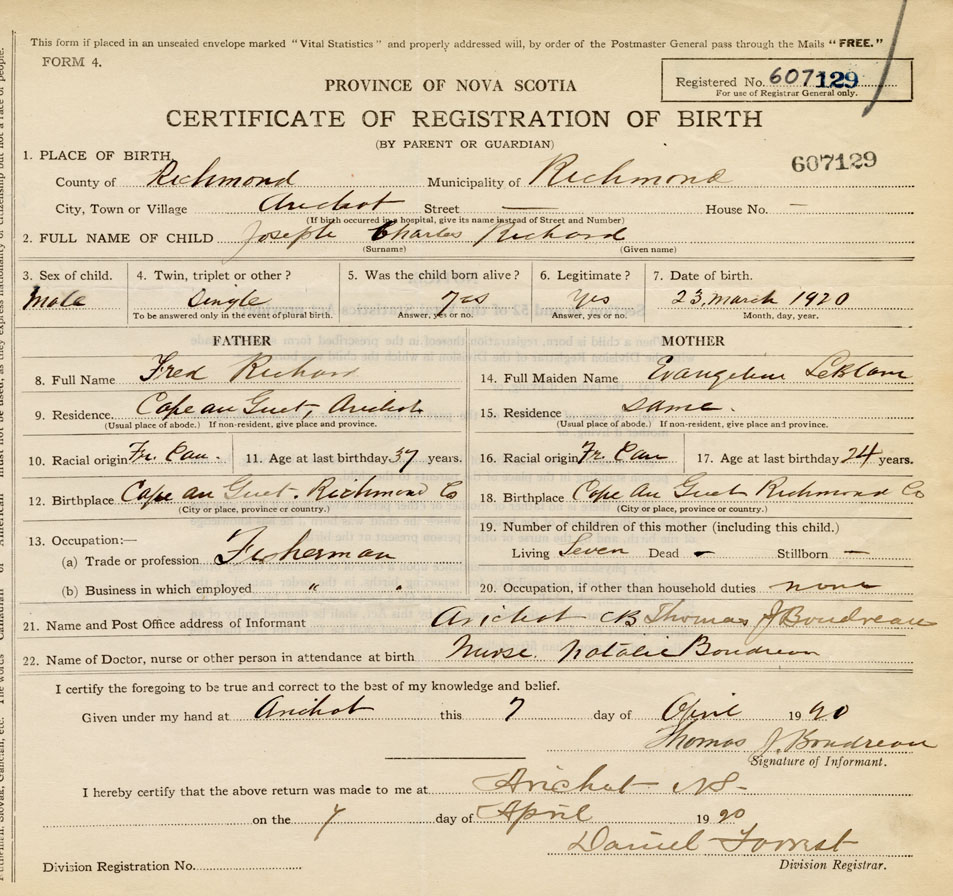 This form if placed in an unsealed envelope marked "Vital Statistics" and properly addressed will, by order of the Postmaster General pass through the Mails "FREE."
FORM 4.
Registered No. 607129
For use of Registrar General only.
PROVINCE OF NOVA SCOTIA
CERTIFICATE OF REGISTRATION OF BIRTH
(BY PARENT OR GUARDIAN)
607129
1. PLACE OF BIRTH
County of Richmond Municipality of Richmond
City, Town or Village Arichat Street — House No. —
(If birth occurred in a hospital, give its name instead of Street and Number)
2. FULL NAME OF CHILD Joseph Charles Richard
(Surname) (Given name)
3. Sex of child. 4. Twin, triplet or other? 5. Was the child born alive? 6. Legitimate? 7. Date of birth.
Male Single Yes Yes 23, March 1920
To be answered only in the event of plural birth. Answer, yes or no. Answer, yes or no. Month, day, year.
FATHER MOTHER
8. Full Name Fred Richard 14. Full Maiden Name Evangeline LeBlanc
9. Residence. Cape au Guet, Arichat 15. Residence same.
(Usual place of abode.) If non-resident, give place and province. (Usual place of abode.) If non-resident, give place and province.
10. Racial origin Fr. Can. 11. Age at last birthday 37 years. 16. Racial origin Fr. Can 17. Age at last birthday 24 years.
12. Birthplace Cape au Guet. Richmond Co 18. Birthplace Cape Au Guet Richmond Co
(City or place, province or country.) (City or place, province or country.)
13. Occupation:— 19. Number of children of this mother (including this child.)
(a) Trade or profession Fisherman Living Seven Dead — Stillborn —
(b) Business in which employed " " 20. Occupation, if other than household duties none
21. Name and Post Office address of Informant Arichat CB Thomas J Boudreau
22. Name of Doctor, nurse or other person in attendance at birth Nurse. Natalie Boudreau
I certify the foregoing to be true and correct to the best of my knowledge and belief.
Given under my hand at Arichat this 7 day of April 1920
Thomas J. Boudreau
Signature of Informant.
I hereby certify that the above return was made to me at Arichat NS-
on the 7 day of April 1920
Daniel Forrest
Division Registrar.
Division Registration No.